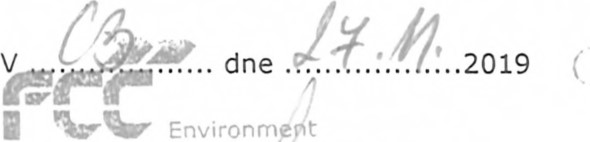 V ČB dne 27.11. 2019
FCC
Environment